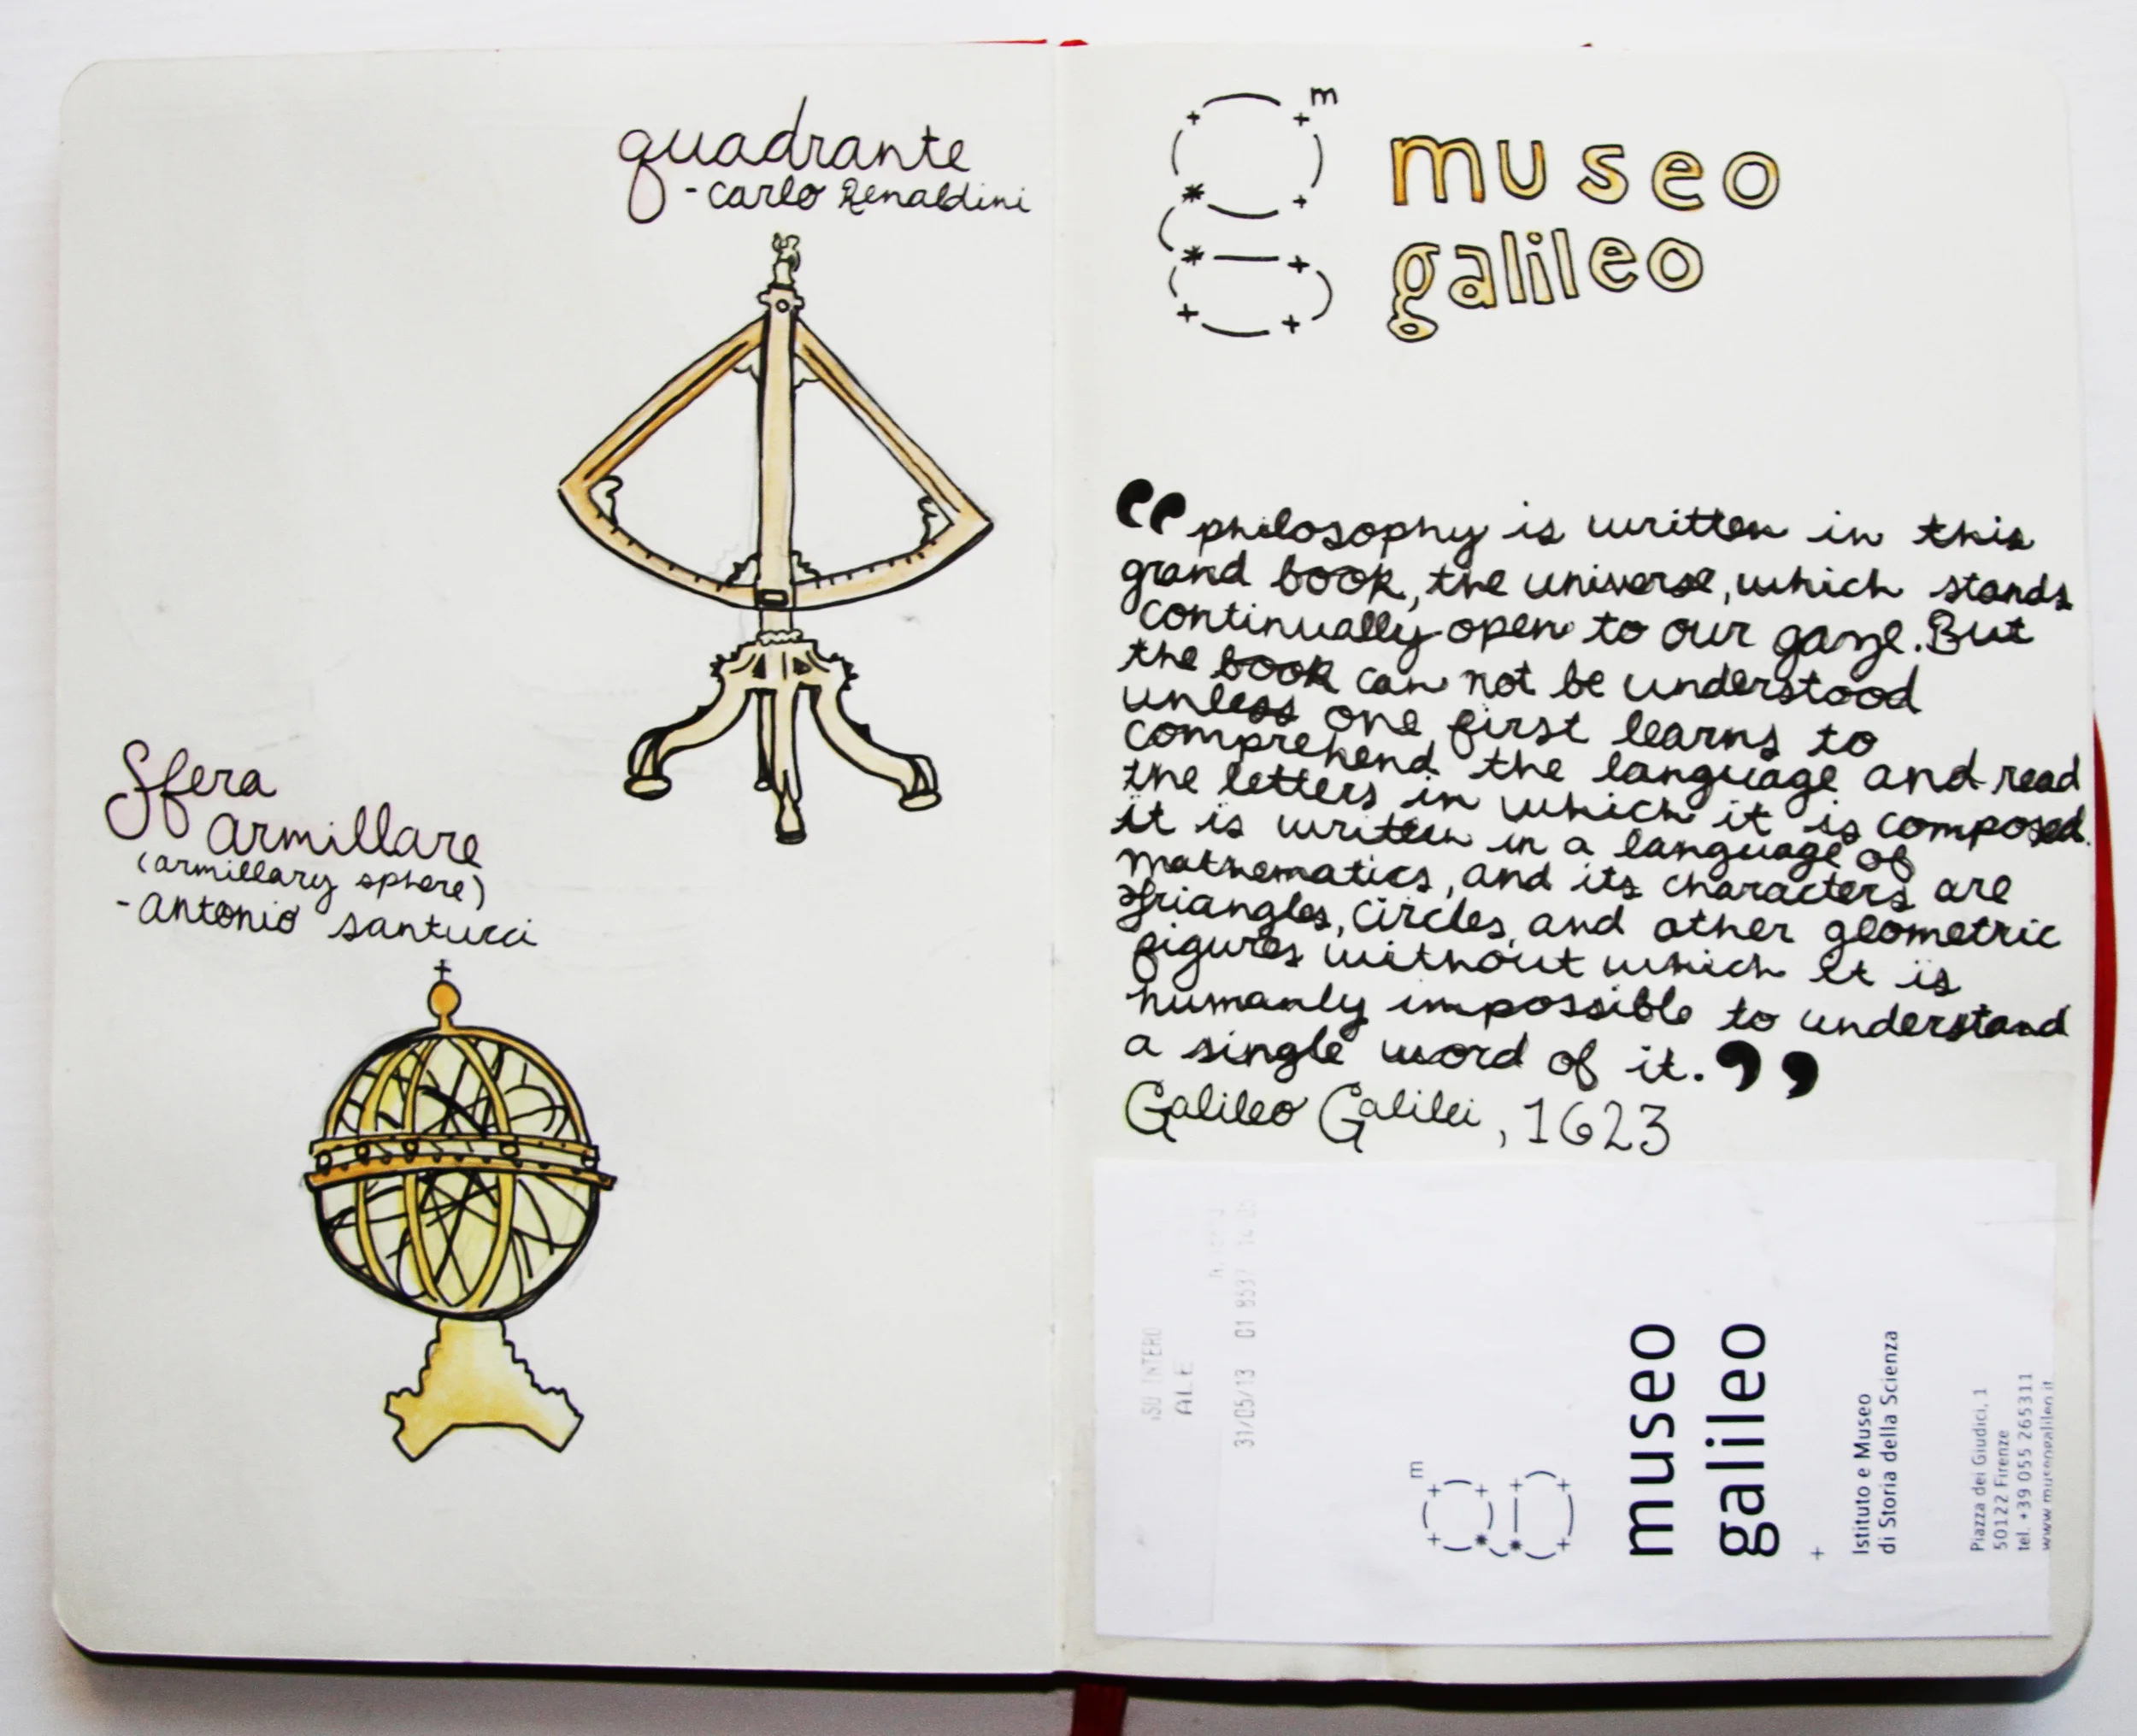 quadrante
- Carlo Renaldini
Sfera
armillare
(armillary sphere)
- Antonio Santucci
m
museo
galileo
“philosophy is written in this
grand book, the universe, which stands
continually open to our gaze. But
the book can not be understood
unless one first learns to
comprehend the language and read
the letters in which it is composed.
it is written in a language of
mathematics, and its characters are
triangles, circles, and other geometric
figures without which it is
humanly impossible to understand
a single word of it.”
Galileo Galilei, 1623
INTERO
ALE
31/05/13 01 8537
m
museo
galileo
+
Istituto e Museo
di Storia della Scienza
Piazza dei Giudici, 1
50122 Firenze
tel. +39 055 265311
www.museogalileo.it